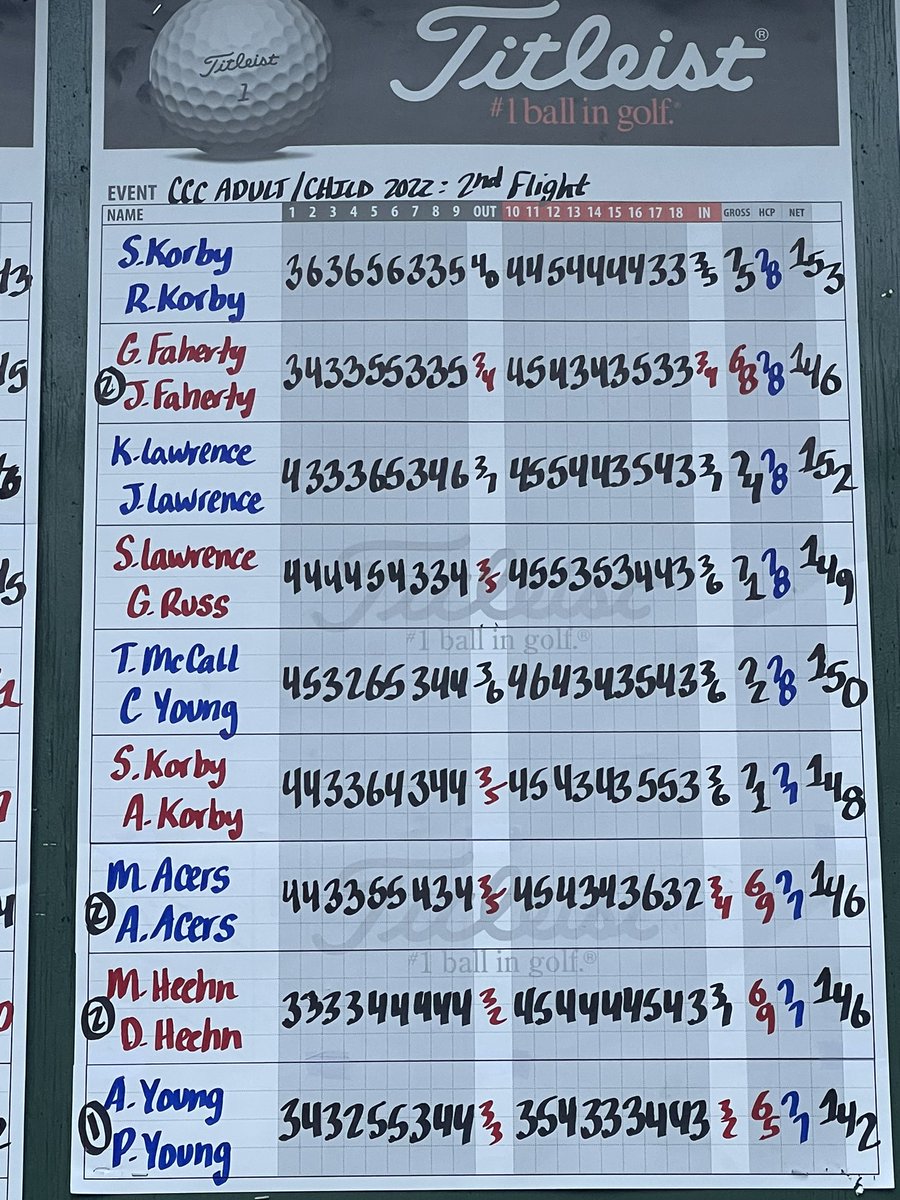 Titleist
1
Titleist®
#1 ball in golf.®
EVENT CCC ADULT/CHILD 2022: 2nd Flight
NAME 1 2 3 4 5 6 7 8 9 OUT 10 11 12 13 14 15 16 17 18 IN GROSS HCP NET
S. Korby
3 6 3 6 5 6 3 3 5 40 4 4 5 4 4 4 4 3 3 35 75 78 153
R. Korby
G. Faherty
3 4 3 3 5 5 3 3 5 34 4 5 4 3 4 3 5 3 3 34 68 78 146
2 J. Faherty
K. Lawrence
4 3 3 3 6 5 3 4 6 37 4 5 5 4 4 3 5 4 3 37 74 78 152
J. Lawrence
S. Lawrence
4 4 4 4 5 4 3 3 4 35 4 5 5 3 5 3 4 4 3 36 71 78 149
G. Russ
Titleist
#1 ball in golf.®
T. McCall
4 5 3 2 6 5 3 4 4 36 4 6 4 3 4 3 5 4 3 36 72 78 150
C Young
S. Korby
4 4 3 3 6 4 3 4 4 35 4 5 4 3 4 3 5 5 3 36 71 77 148
A. Korby
M. Acers
4 4 3 3 5 5 4 3 4 35 4 5 4 3 4 3 6 3 2 34 69 77 146
2 A. Acers
Titleist
#1 ball in golf.®
M. Heehn
3 3 3 3 4 4 4 4 4 32 4 5 4 4 4 4 5 4 3 37 69 77 146
2 D. Heehn
A. Young
3 4 3 2 5 5 3 4 4 33 3 5 4 3 3 3 4 4 3 32 65 77 142
1 P. Young